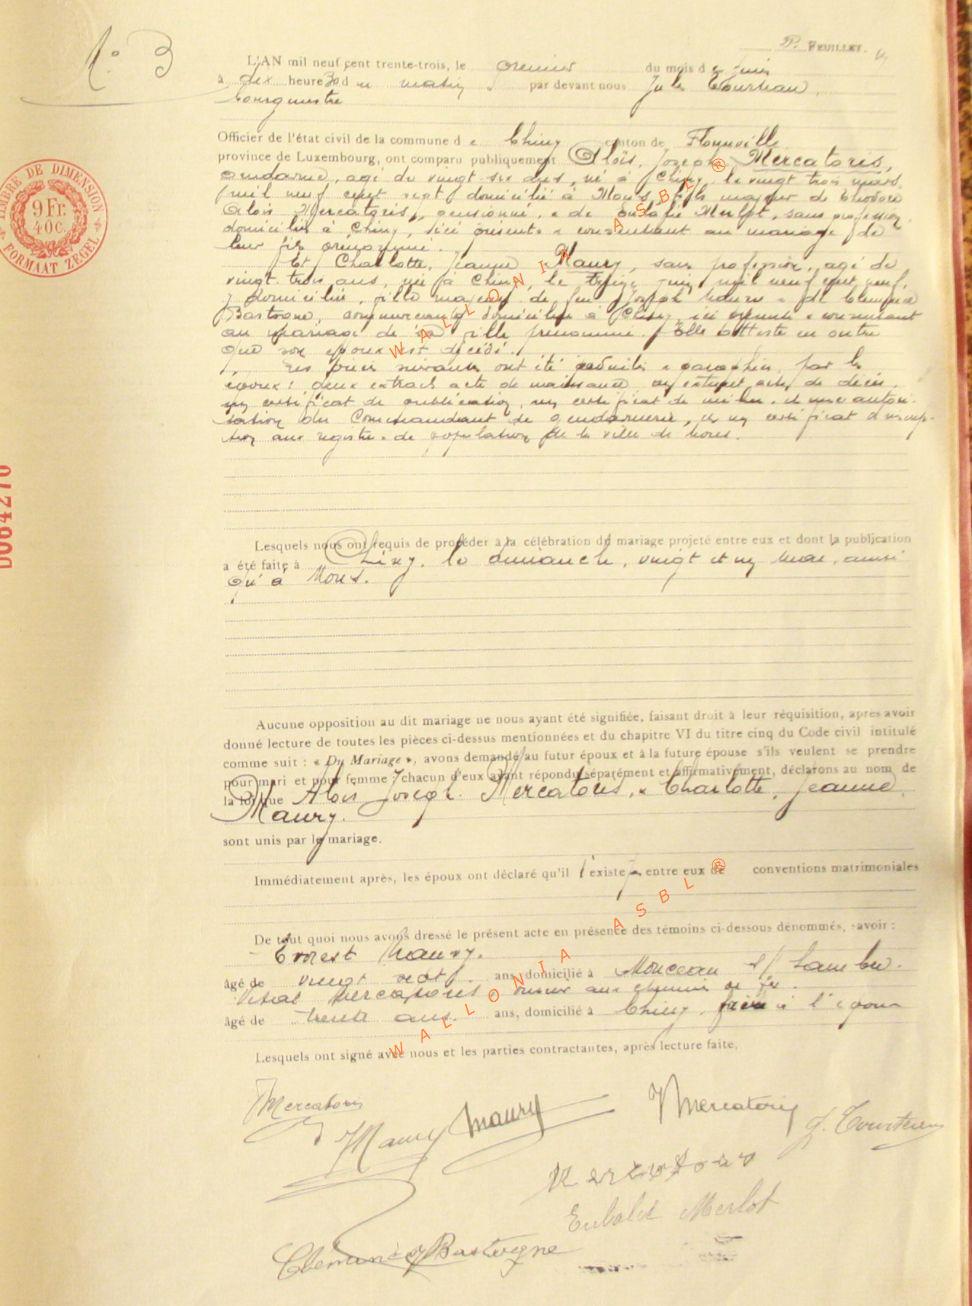 N° 3
FEUILLET.
L'AN mil neuf cent trente-trois, le premier du mois de juin
à dix heures 30 du matin par devant nous Jules
bourgmestre
Officier de l'état civil de la commune de Chiny canton de Florenville
province de Luxembourg, ont comparu publiquement Aloïs, Joseph Mercatoris,
gendarme, âgé de vingt six ans, né à Chiny, le vingt trois mars
mil neuf cent sept domicilié à Mons, fils majeur de Théodore
Aloïs Mercatoris, pensionné, & de Eulalie Merlot, sans profession,
domiciliés à Chiny, ici présents & consentant au mariage de
leur fils prénommé.
Et Charlotte, Jeanne Maury, sans profession, âgé de
vingt trois ans, née à Chiny, le treize juin mil neuf cent neuf,
y domiciliée, fille majeure de feu Joseph Maury & de Clémence
Bastogne, commerçante domiciliée à Chiny, ici présente & consentant
au mariage de sa fille prénommée. Elle atteste en outre
que son époux est décédé.
Les pièces suivantes ont été produites & paraphées par les
époux: deux extraits acte de naissance, un extrait acte de décès,
un certificat de publication, un certificat de milice, et une autori-
sation du Commandant de gendarmerie, et un certificat d'inscrip-
tion aux registres de population de la ville de Mons.
DO64270
TIMBRE DE DIMENSION
9 Fr.
40C.
FORMAAT ZEGEL
Lesquels nous ont requis de procéder à la célébration du mariage projeté entre eux et dont la publication
a été faite à Chiny, le dimanche, vingt et un mai, ainsi
qu'à Mons.
Aucune opposition au dit mariage ne nous ayant été signifiée, faisant droit à leur réquisition, après avoir
donné lecture de toutes les pièces ci-dessus mentionnées et du chapitre VI du titre cinq du Code civil intitulé
comme suit : « Du Mariage », avons demandé au futur époux et à la future épouse s'ils veulent se prendre
pour mari et pour femme ; chacun d'eux ayant répondu séparément et affirmativement, déclarons au nom de
la loi que Aloïs Joseph Mercatoris, & Charlotte, Jeanne
Maury.
sont unis par le mariage.
Immédiatement après, les époux ont déclaré qu'il existe entre eux de conventions matrimoniales
De tout quoi nous avons dressé le présent acte en présence des témoins ci-dessous dénommés, savoir :
Ernest Maury.
âgé de vingt sept ans, domicilié à Monceau s/ Sambre.
Vital Mercatoris ouvrier aux chemins de fer.
âgé de trente ans. ans, domicilié à Chiny, frère à l'époux
Lesquels ont signé avec nous et les parties contractantes, après lecture faite.
Mercatoris
Maury Maury
Mercatoris
Eulalie Merlot
Clémence Bastogne
WALLONIA ASBL ®
WALLONIA ASBL ®